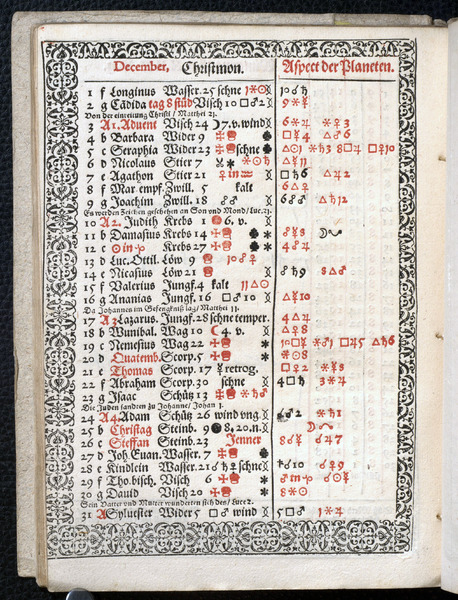 December, Christmon. Aspect der Planeten.
1 f Longinus Wasser. 25 schne 1✶☉ 10☌♄
2 g Cādida tag 8 stūd Visch 10 □♂2 9✶☿
Von der einreitung Christi / Matthei 21.
3 A1. Aduent Visch 24 ☽7. v. wind 6✶♃ ✶♀3
4 b Barbara Wider 9 □☿4 △♂6
5 c Seraphia Wider 23 schne △☉1 ✶♄3 8□♃ □♀10
6 d Nicolaus Stier 7 ✶☉♄ △☿11
7 e Agathon Stier 21 ♀in♒ □♄6 △♃2
8 f Mar. empf. Zwill. 5 kalt 6△♀
9 g Joachim Zwill. 18 ☍♂ 6☍♂ △♄12
Es werden Zeichen geschehen an Son vnd Mond / Luc. 21.
10 A2. Judith Krebs 1 6. v.
11 b Damasius Krebs 14 8☍☿
12 c ☉in♑ Krebs 27 4☍♃
13 d Luc. Ottil. Löw 9 10☍♀
14 e Nicasius Löw 21 ☍♄9 8△♂
15 f Valerius Jungf. 4 kalt 11△☉
16 g Ananias Jungf. 16 □♂10 △☿10
Da Johannes im Gefengnüß lag / Matthei 11.
17 A3 Lazarus. Jungf. 28 schne temper. 4△♃
18 b Wunibal. Wag 10 ☾4. v. △♀8
19 c Nemesius Wag 22 10□☿ ✶♂1 □♃5 △♄6
20 d Quatemb. Scorp. 5 ✶☉8
21 e Thomas Scorp. 17 ☿retrog. □♀2 ✶☿3
22 f Abraham Scorp. 30 schne 4□♄ 3✶♃
23 g Isaac Schütz 13 ✶♄♂
Die Juden sandten zu Johanne / Johan 1.
24 A4. Adam Schütz 26 wind vng. 6☌♂2 ✶♄1
25 b Christag Steinb. 9 8, 20. n.
26 c Steffan Steinb. 23 Jenner 8☌☿ ☌♃7
27 d Joh. Euan. Wasser. 7
28 e Kindlein Wasser. 21 ☌♄♀schne ♄☌10 ☌♀9
29 f Tho. bisch. Visch 6 ♂in♑ ☌☉☿
30 g Dauid Visch 20 8✶☉
Sein Vatter vnd Mutter wunderten sich des / Luce 2.
31 A Syluester Wider 5 □♂wind 5□♂ 1✶♃